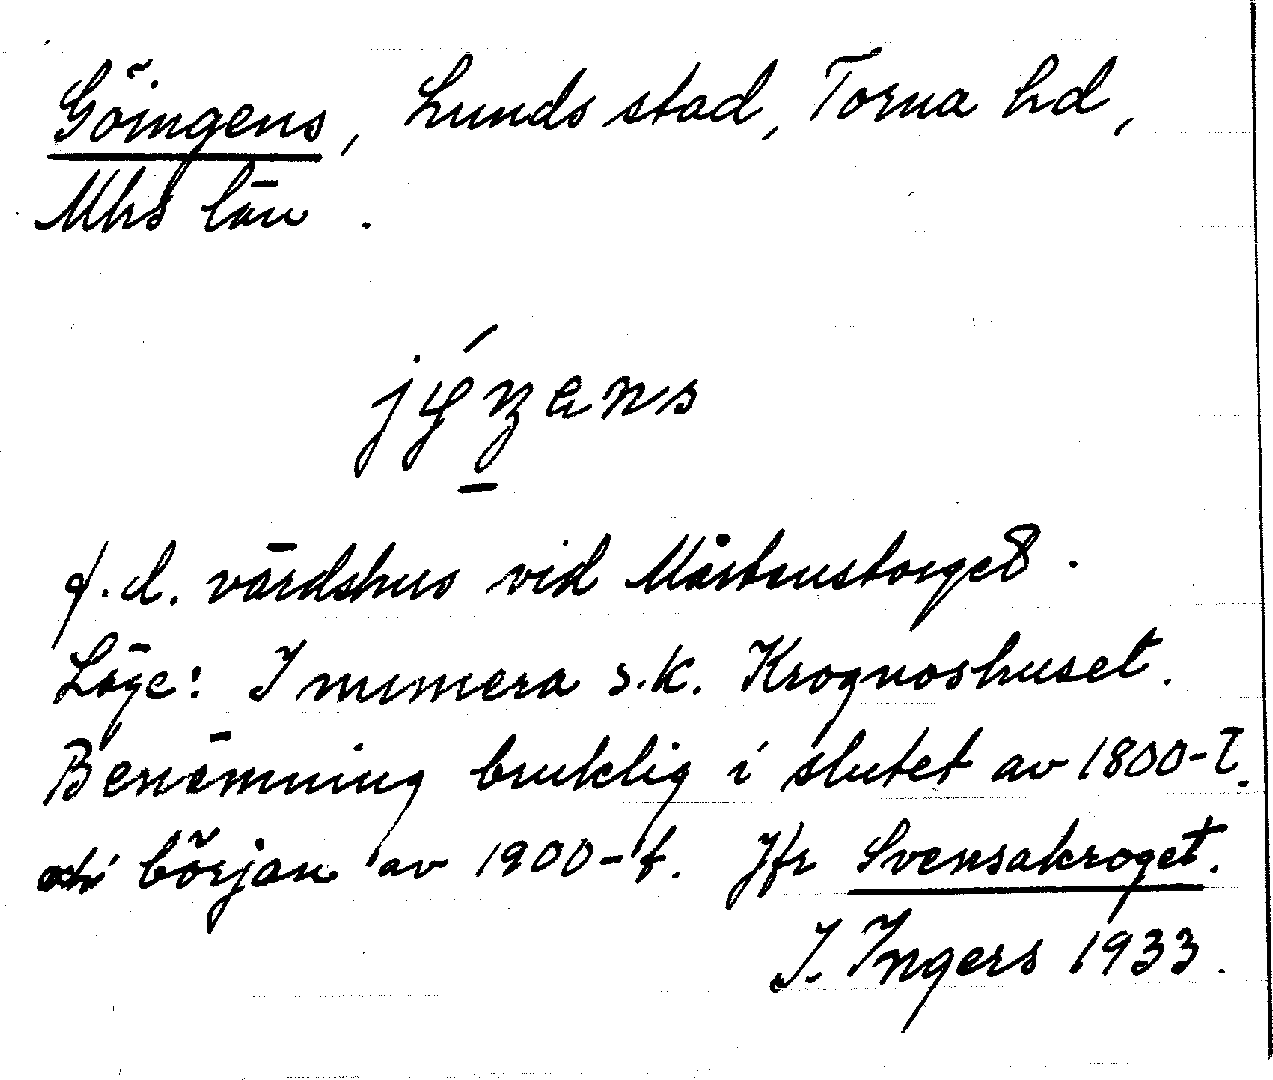 Göingens, Lunds stad, Torna hd,
Mhs län.
jýŋens
f.d. värdshus vid Mårtenstorget.
Läge: I numera s.k. Krognoshuset.
Benämning bruklig i slutet av 1800-t.
och i början av 1900-t. Jfr Svenskakroget.
I. Ingers 1933.